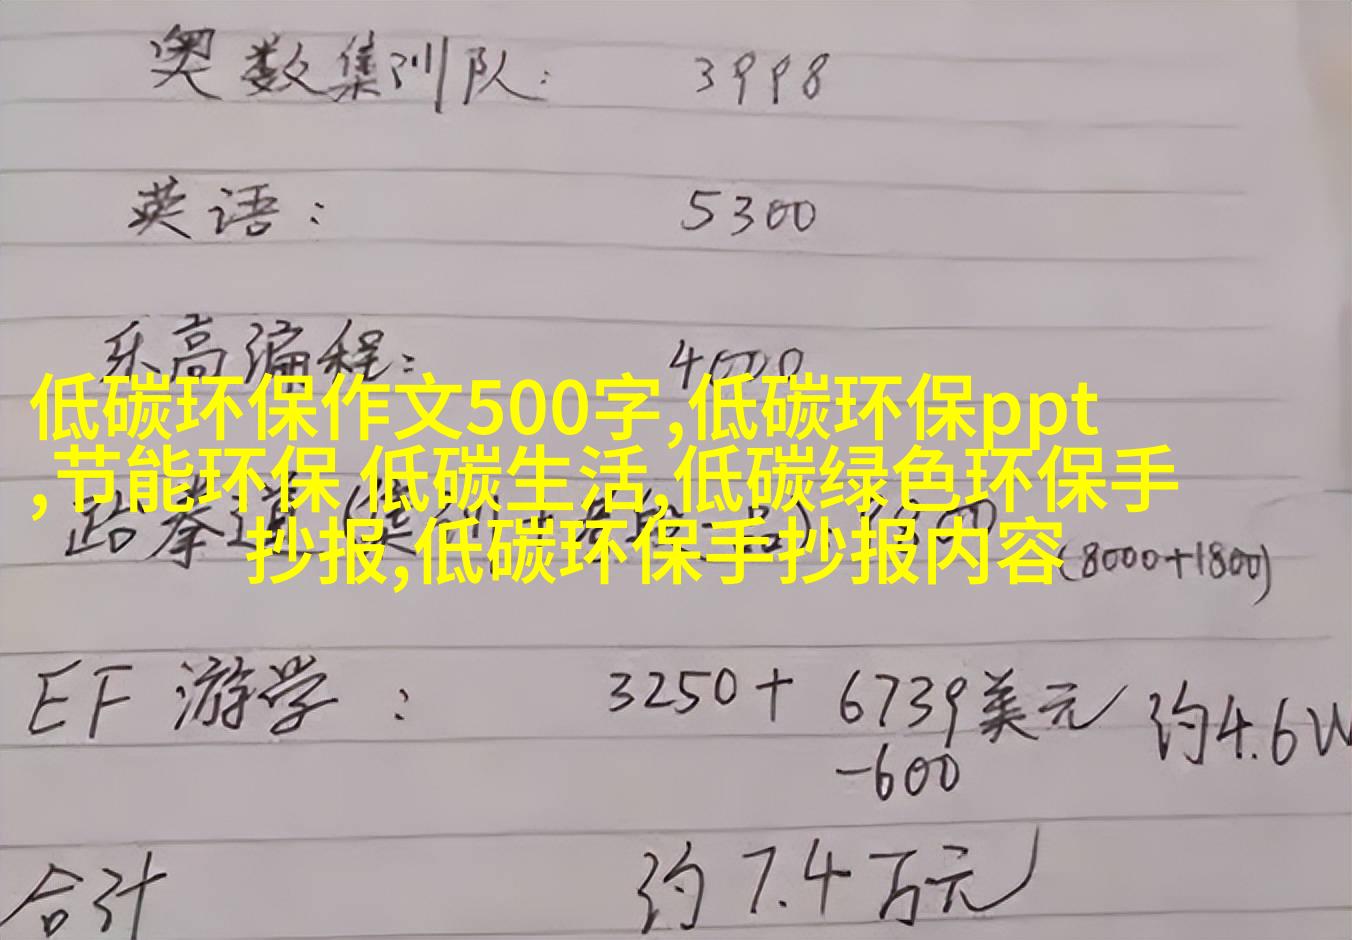 奥数集训队: 3998
英语: 5300
乐高编程: 4000
低碳环保作文500字,低碳环保ppt
,节能环保 低碳生活,低碳绿色环保手
抄报,低碳环保手抄报内容
跆拳道 (8000+1800)
EF 游学: 3250+6739美元 约4.6W
-600
合计 约7.4万元